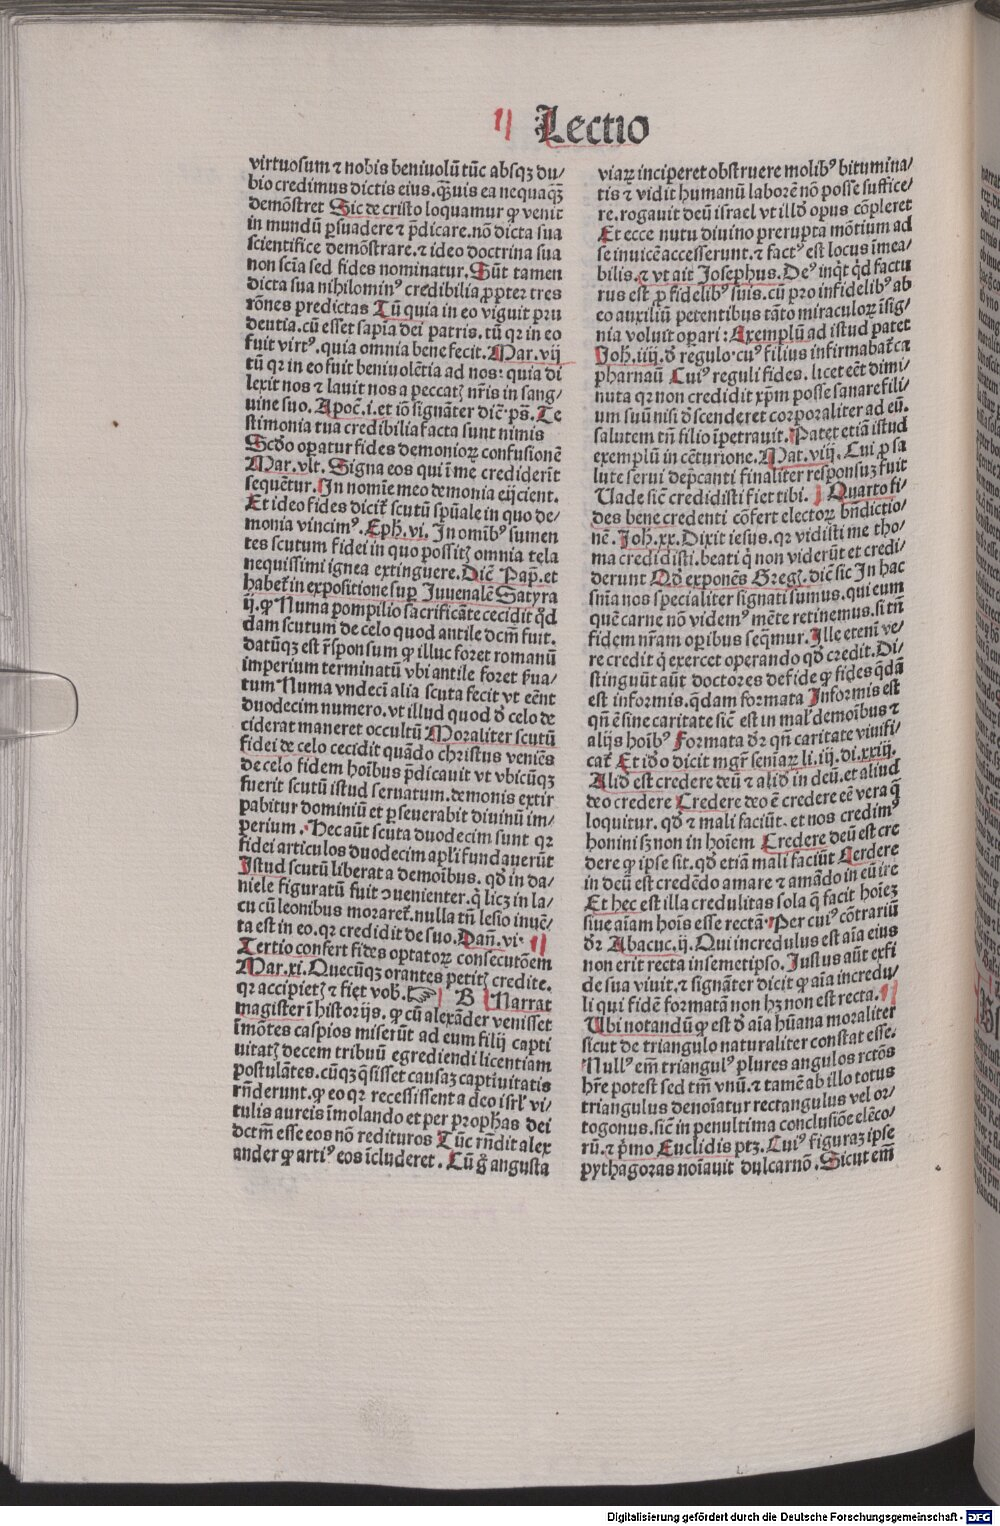 Lectio
virtuosum ⁊ nobis beniuolū tūc absqꝫ du/
bio credimus dictis eius. qȝuis ea nequaqȝ
demōstret Sic de cristo loquamur ꝙ venit
in mundū ꝑsuadere ⁊ p̄dicare. nō dicta sua
scientifice demōstrare. ⁊ ideo doctrina sua
non scīa sed fides nominatur. Sūt tamen
dicta sua nihilominꝰ credibilia ꝓpter tres
rōnes predictas Tū quia in eo viguit pru
dentia. cū esset sapīa dei patris. tū qꝛ in eo
fuit virtꝰ. quia omnia bene fecit. Mar. vij
tū qꝛ in eo fuit beniuolētia ad nos: quia di
lexit nos ⁊ lauit nos a peccatꝭ nr̄is in sang/
uine suo. Apoc̄. i. et iō signāter dic̄ ps̄. Te
stimonia tua credibilia facta sunt nimis
Scd̓o operatur fides demonioꝝ confusionē
Mar. vlt. Signa eos qui ī me crediderīt
sequētur. In nomīe meo demonia eijcient.
Et ideo fides dicit᷑ scutū spūale in quo de/
monia vincimꝰ. Eph̄. vi. In omībꝰ sumen
tes scutum fidei in quo possitꝭ omnia tela
nequissimi ignea extinguere. Dic̄ Pap. et
habet᷑ in expositione suꝑ Juuenalē Satyra
ij. ꝙ Numa pompilio sacrificāte cecidit qd̓
dam scutum de celo quod antile dcm̄ fuit.
datūqꝫ est r̄sponsum ꝙ illuc foret romanū
imperium terminatū vbi antile foret ẜua/
tum Numa vndecī alia scuta fecit vt eēnt
duodecim numero. vt illud quod d̓ celo de
ciderat maneret occultū Moraliter scutū
fidei de celo cecidit quādo christus veniēs
de celo fidem hoībus p̄dicauit vt vbicūqꝫ
fuerit scutū istud seruatum. demonis extir
pabitur dominiū et ꝑseuerabit diuinū im/
perium. Hec aūt scuta duodecim sunt qꝛ
fidei articulos duodecim apl̓i fundauerūt
Istud scutū liberat a demoībus. qd̓ in da/
niele figuratū fuit ꝯuenienter. qͥ licꝫ in la/
cu cū leonibus moraret᷑. nulla tn̄ lesio inuē/
ta est in eo. qꝛ credidit de suo. Dan̄. vi.
Tertio confert fides optatoꝝ consecutōem
Mar. xi. Quecūqꝫ orantes petitꝭ credite.
qꝛ accipietꝭ ⁊ fiet vob̄. ☞ B Narrat
magister ī historijs. ꝙ cū alexāder venisset
īmōtes caspios miserūt ad eum filij capti
uitatꝭ decem tribuū egrediendi licentiam
postulātes. cūqꝫ q̄sisset causaꝫ captiuitatis
rn̄derunt. ꝙ eo qꝛ recessissent a deo isrl̓ vi/
tulis aureis īmolando et per proph̄as dei
dctm̄ esse eos nō redituros Tūc rn̄dit alex
ander ꝙ artiꝰ eos īcluderet. Cū g̊ angusta
viaꝝ inciperet obstruere molibꝰ bitumina/
tis ⁊ vidit humanū laborē nō posse suffice/
re. rogauit deū israel vt illd̓ opus cōpleret
Et ecce nutu diuino prerupta mōtium ad
se inuicē accesserunt. ⁊ factꝰ est locus īmea/
bilis. ⁊ vt ait Josephus. Deꝰ inq̇t qd̓ factu
rus est ꝓ fidelibꝰ suis. cū pro infidelibꝰ ab
eo auxiliū petentibus tāto miraculoꝝ īsig/
nia voluit oꝑari: Exemplū ad istud patet
Joh̄. iiij. d̓ regulo. cuꝰ filius infirmabat᷑ ca
pharnaū Cuiꝰ reguli fides. licet eēt dimi/
nuta qꝛ non credidit xp̄m posse sanare fili/
um suū nisi d̓scenderet corporaliter ad eū.
salutem tn̄ filio īpetrauit. Patet etiā istud
exemplū in cēturione. Mat. viij. Cui ꝓ sa
lute serui dep̄canti finaliter responsuꝫ fuit
Uade sic̄ credidisti fiet tibi. Quarto fi/
des bene credenti cōfert electoꝝ bn̄dictio/
nē. Joh̄. xx. Dixit iesus. qꝛ vidisti me tho/
ma credidisti. beati qͥ non viderūt et credi/
derunt Qd̓ exponēs Greg. dic̄ sic In hac
sn̄ia nos specialiter signati sumus. qui eum
quē carne nō videmꝰ mēte retinemus. si tn̄
fidem nr̄am oꝑibus seq̄mur. Ille etenī ve/
re credit qͥ exercet operando qd̓ credit. Di/
stinguūt aūt doctores de fide ꝙ fides q̄dā
est informis. q̄dam formata Informis est
qn̄ ē sine caritate sic̄ est in mal̓ demoībus ⁊
alijs hoībꝰ Formata d̓r qn̄ caritate viuifi/
cat᷑ Et id̓o dicit mgr̄ senīaꝝ li. iij. di. xxiij.
Aliḋ est credere deū ⁊ aliḋ in deū. et aliud
deo credere Credere deo ē credere eē vera q̄
loquitur. qd̓ ⁊ mali faciūt. et nos credimꝰ
honini sꝫ non in hoīem Credere deū est cre
dere ꝙ ipse sit. qd̓ etiā mali faciūt Cerdere
in deū est credēdo amare ⁊ amādo in eū ire
Et hec est illa credulitas sola q̄ facit hoīeꝫ
siue aīam hoīs esse rectā. Per cuiꝰ cōtrariū
d̓r Abacuc. ij. Qui incredulus est aīa eius
non erit recta in semetipso. Justus aūt exfi
de sua viuit. ⁊ signāter dicit ꝙ aīa incredu/
li qui fidē formatā non hꝫ non est recta.
Ubi notandū ꝙ est d̓ aīa hūana moraliter
sicut de triangulo naturaliter constat esse.
Nullꝰ em̄ triangulꝰ plures angulos rctōs
hr̄e potest sed tm̄ vnū. ⁊ tamē ab illo totus
triangulus denoīatur rectangulus vel or/
togonus. sic̄ in penultima conclusiōe elēco/
rū. ⁊ p̄mo Euclidis ptꝫ. Cuiꝰ figuraꝫ ipse
pythagoras noīauit dulcarnō. Sicut em̄
Digitalisierung gefördert durch die Deutsche Forschungsgemeinschaft - DFG